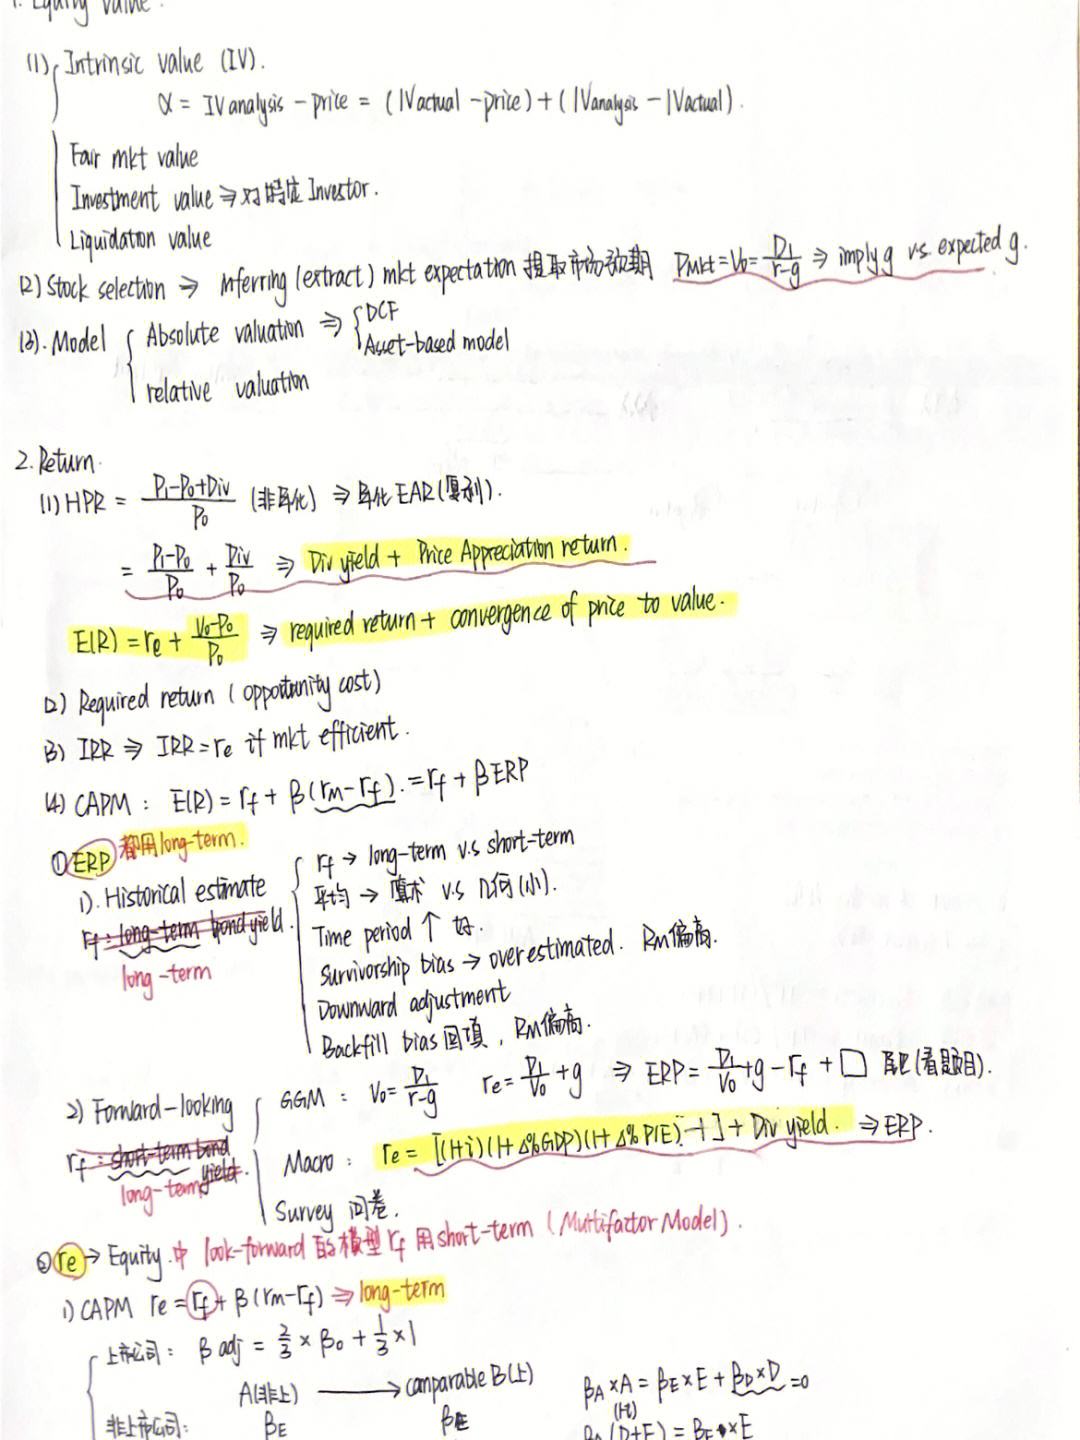 1. Equity value.
(1) Intrinsic value (IV).
α = IVanalysis - price = (IVactual - price) + (IVanalysis - IVactual).
Fair mkt value
Investment value ⇒ 对特定 Investor.
Liquidation value
(2) Stock selection ⇒ inferring (extract) mkt expectation 提取市场预期 Pmkt = V0 = D1/(r-g) ⇒ imply g v.s. expected g.
(3). Model { Absolute valuation ⇒ { DCF
Asset-based model
relative valuation
2. Return.
(1) HPR = (P1-P0+Div)/P0 (非年化) ⇒ 年化 EAR (复利).
= (P1-P0)/P0 + Div/P0 ⇒ Div yield + Price Appreciation return.
E(R) = re + (V0-P0)/P0 ⇒ required return + convergence of price to value.
(2) Required return (opportunity cost)
(3) IRR ⇒ IRR = re if mkt efficient.
(4) CAPM: E(R) = rf + β(rm-rf). = rf + βERP
① ERP 都用long-term.
1). Historical estimate
rf: long-term bond yield.
long-term
rf → long-term v.s short-term
平均 → 算术 v.s 几何(小).
Time period ↑ 好.
Survivorship bias → overestimated. Rm偏高.
Downward adjustment
Backfill bias 回填, Rm偏高.
2) Forward-looking
rf: short-term bond yield.
long-term
GGM: V0 = D1/(r-g) re = D1/V0 + g ⇒ ERP = D1/V0 + g - rf + □ (看题目).
Macro: re = [(1+i)(1+Δ%GDP)(1+Δ%P/E) -1] + Div yield. ⇒ ERP.
Survey 问卷.
② re → Equity.中 look-forward 的模型 rf 用short-term (Multifactor Model).
1) CAPM re = rf + β(rm-rf) ⇒ long-term
上市公司: β adj = 2/3 × β0 + 1/3 × 1
A(非上) → comparable B(上) βA × A = βE × E + βD × D = 0
非上市公司: βE βE βA (D+E) = βE × E